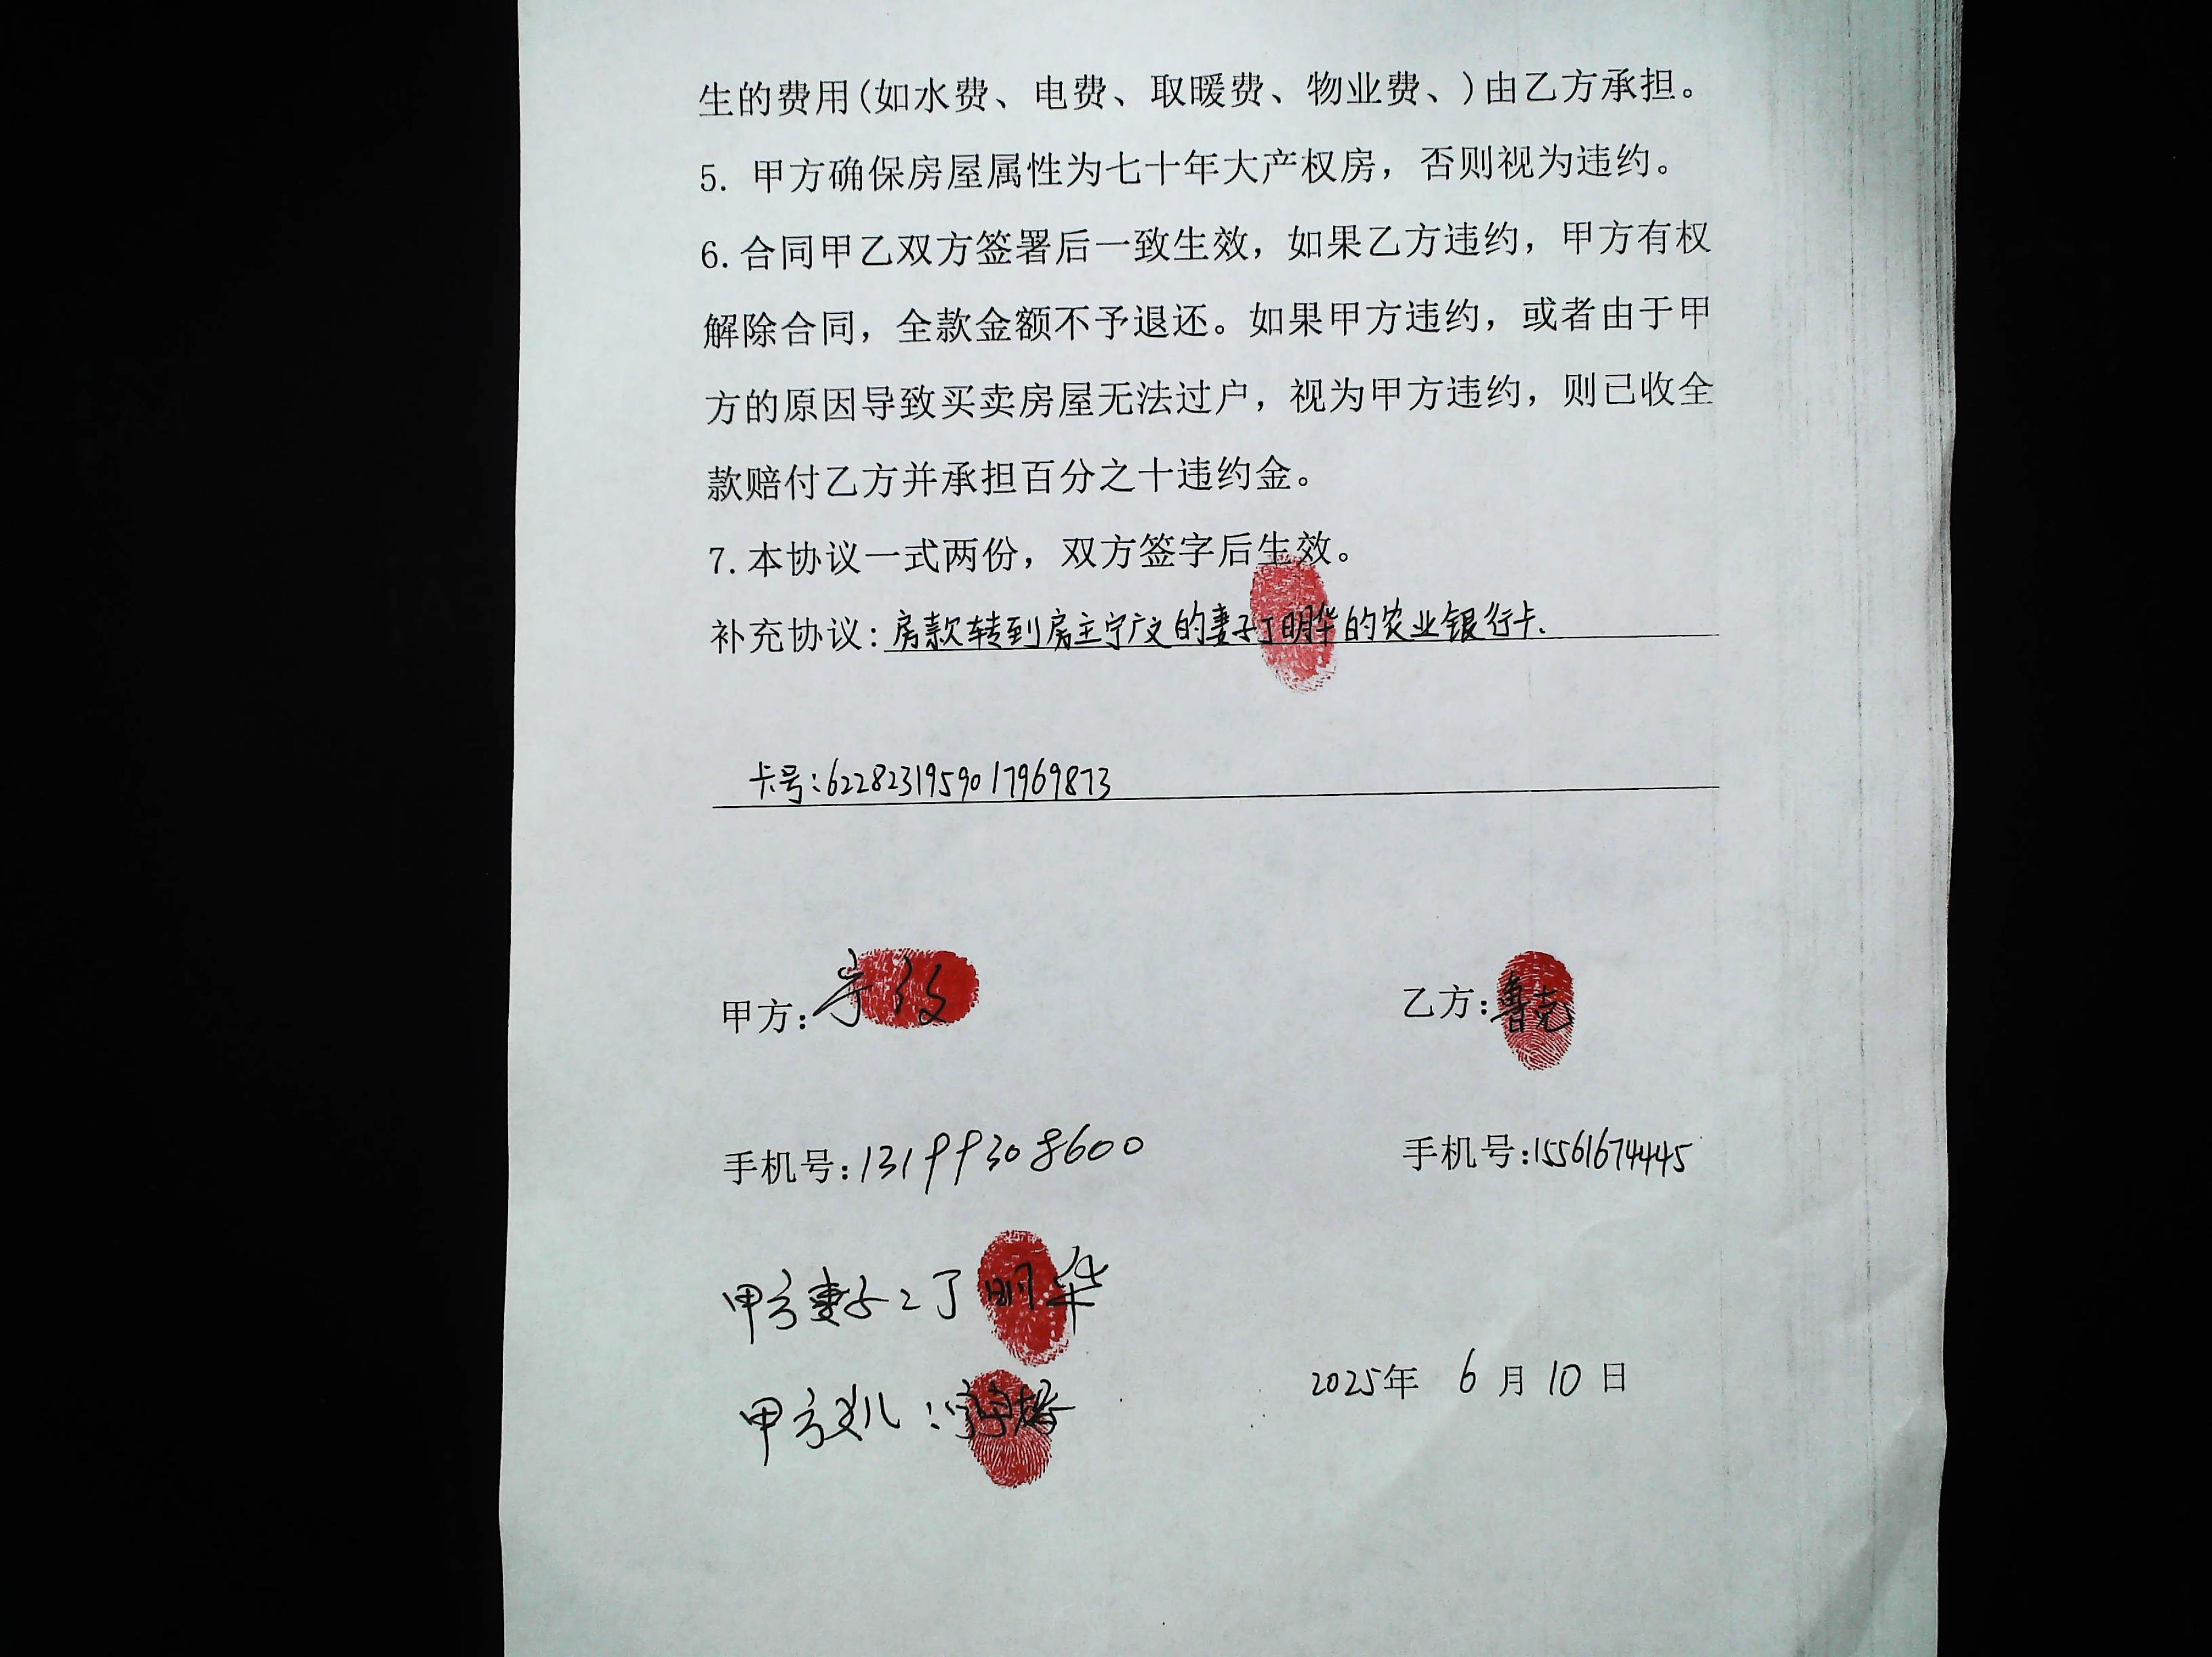 生的费用(如水费、电费、取暖费、物业费、)由乙方承担。
5. 甲方确保房屋属性为七十年大产权房，否则视为违约。
6.合同甲乙双方签署后一致生效，如果乙方违约，甲方有权
解除合同，全款金额不予退还。如果甲方违约，或者由于甲
方的原因导致买卖房屋无法过户，视为甲方违约，则已收全
款赔付乙方并承担百分之十违约金。
7.本协议一式两份，双方签字后生效。
补充协议:房款转到房主宁广文的妻子丁明华的农业银行卡.
卡号:6228231959017969873
甲方: 乙方:鲁克
手机号:13199308600 手机号:15561674445
甲方妻子:丁明华
2025年 6 月 10 日
甲方女儿: